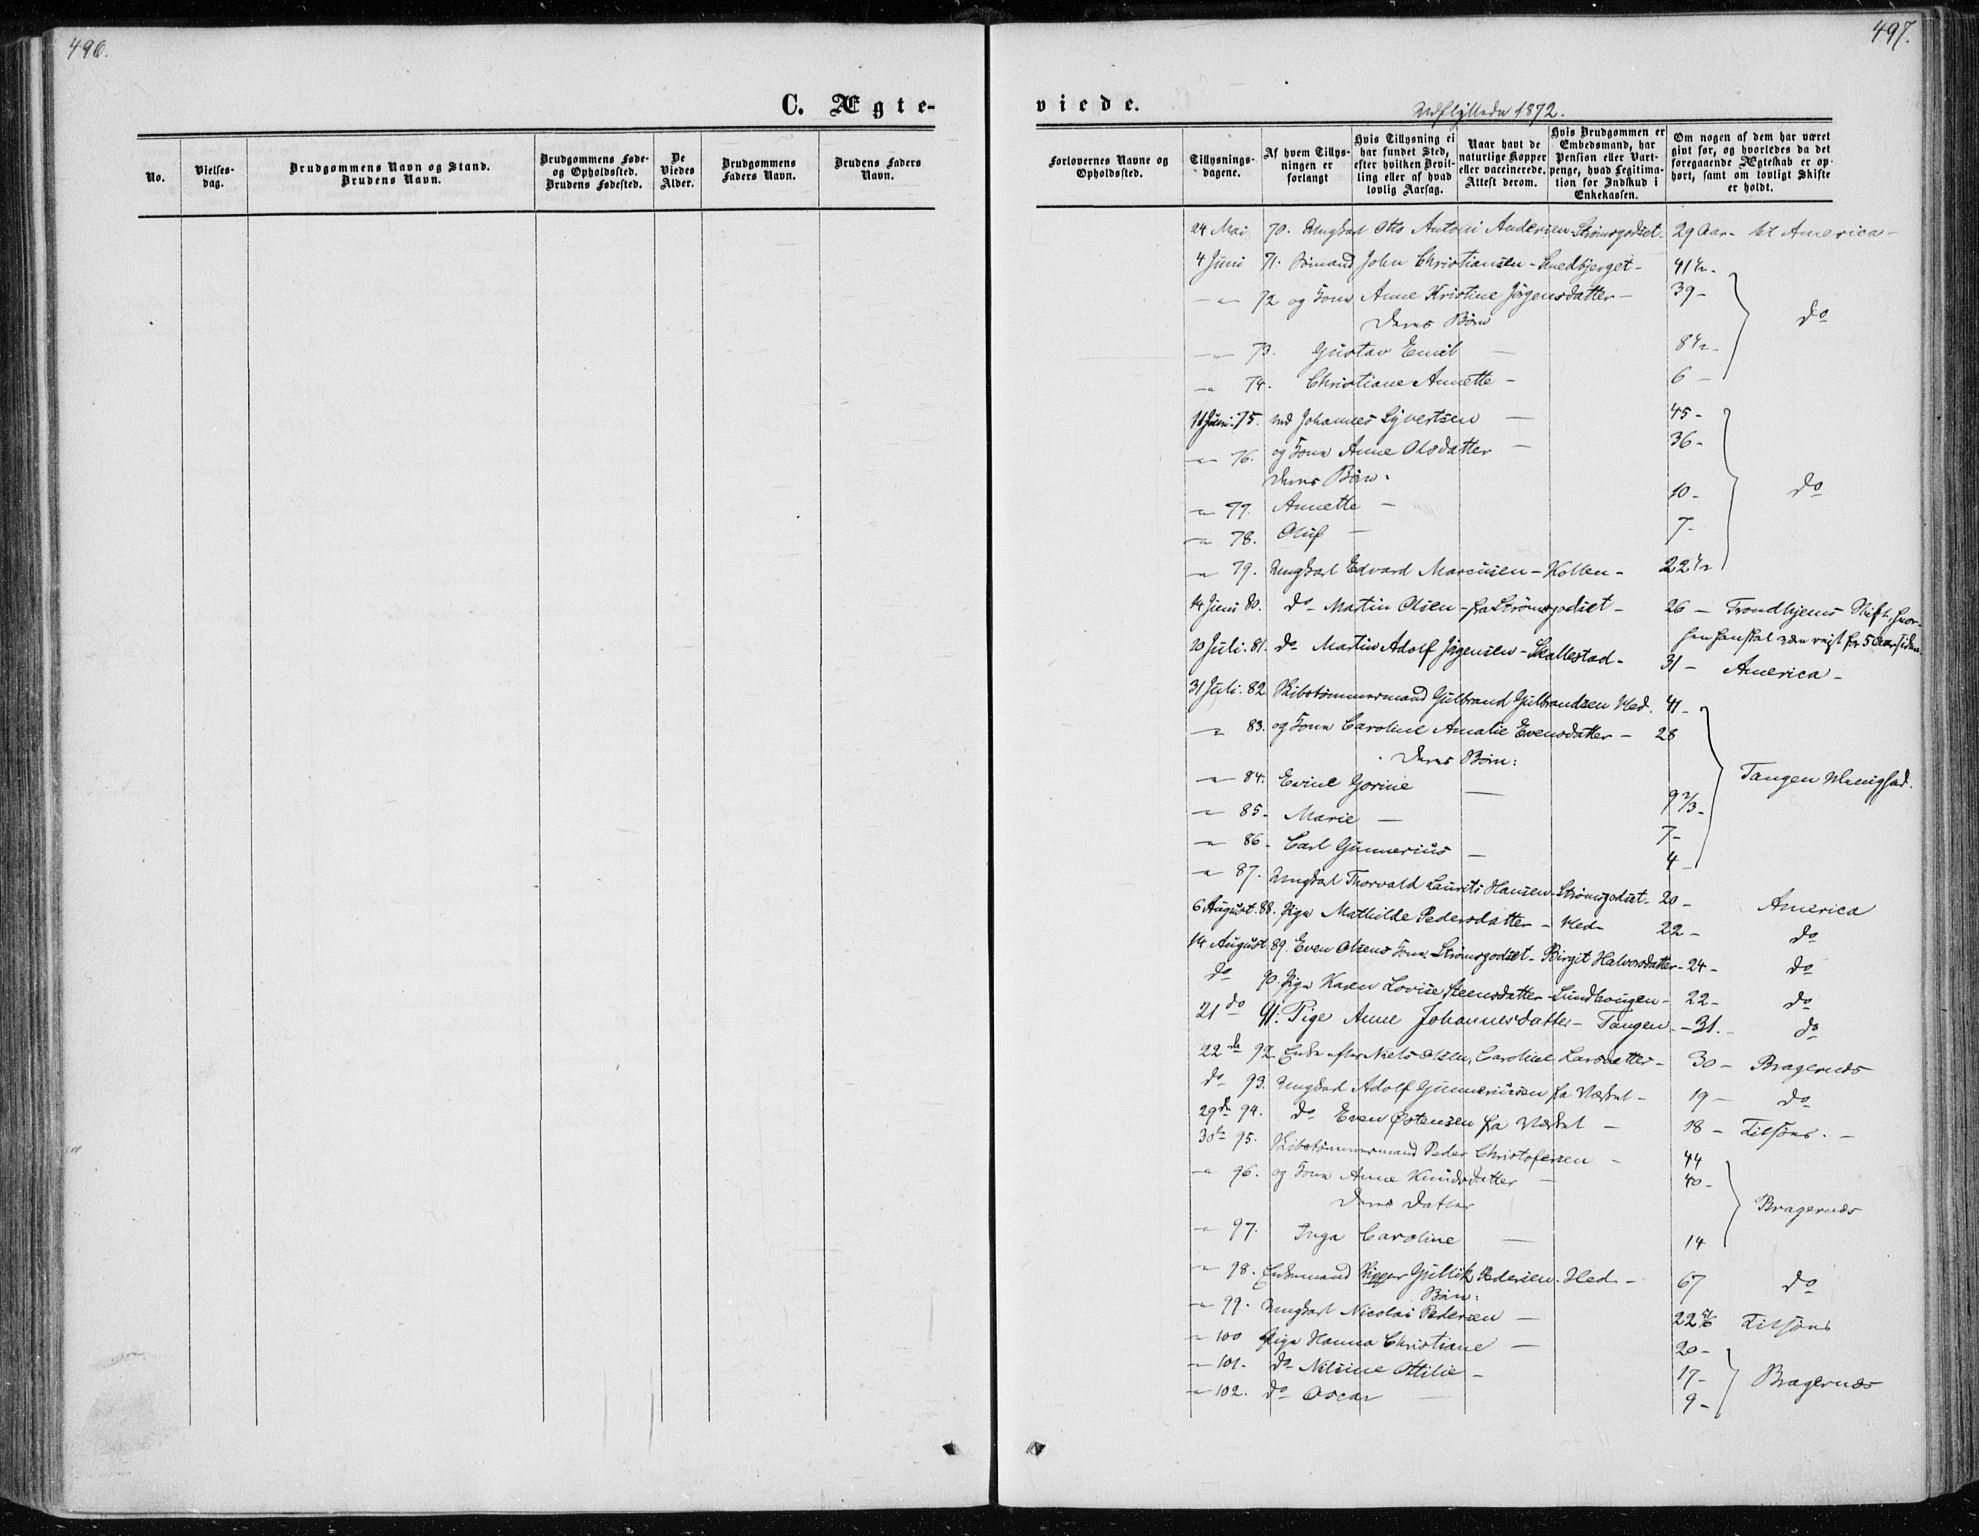 496.
C. Ægte-
No.
Vielses-
dag.
Brudgommens Navn og Stand.
Brudens Navn.
Brudgommens Føde-
og Opholdssted.
Brudens Fødested.
De
Viedes
Alder.
Brudgommens
Faders Navn.
Brudens Faders
Navn.
497.
viede.
Udflyttede 1872.
Forlovernes Navne og
Opholdssted.
Tillysnings-
dagene.
Af hvem Tillys-
ningen er
forlangt
Hvis Tillysning ei
har fundet Sted,
efter hvilken Bevil-
ling eller af hvad
lovlig Aarsag.
Naar havt de
naturlige Kopper
eller vaccinerede.
Attest derom.
Hvis Brudgommen er
Embedsmand, har
Pension eller Vart-
penge, hvad Legitima-
tion for Indskud i
Enkekassen.
Om nogen af dem har været
givt før, og hvorledes da det
foregaaende Ægteskab er op-
hørt, samt om lovligt Skifte
er holdt.
24 Mai 70. Ungkarl Otto Antoni Andersen-Strømsgodset- 29 Aar- til America-
4 Juni 71. Sømand John Christiansen - Smedbjerget- 41½-
-"- 72 og Kone Anne Kristine Jørgensdatter- 39- do
Deres Børn
-"- 73. Gustav Emil - 8½-
-"- 74. Christiane Annette - 6-
11 Juni 75. Johannes Syvertsen - 45-
-"- 76. og Kone Anne Olsdatter - 36-
Deres Børn: do
-"- 77. Annette - 10-
-"- 78. Oluf - 7-
-"- 79. Ungkarl Edvard Marcusen-Kollen- 22½
14 Juni 80. do- Martin Olsen-fra Strømsgodset- 26 - Trondhjems Stift, hvor-
hen han skal være reist for 5 Aar siden.
20 Juli 81. do Martin Adolf Jørgensen-Skallestad- 31- America-
31 Juli. 82. Skibstømmermand Gulbrand Gulbrandsen Hed. 41-
-"- 83. og Kone Caroline Amalie Evensdatter- 28
Deres Børn:
-"- 84. Evine Gorine - 9 2/3- Tangen Menighed.
-"- 85- Marie - 7-
-"- 86- Carl Gunnerius - 4-
-"- 87. Ungkarl Thorvald Laurits Hansen-Strømsgodset- 20- America
6 August. 88. Pige Mathilde Pedersdatter - Hed- 22- do
14 August 89. Even Olsens Kone-Strømsgodset- Birgit Halvorsdatter- 24- do
do 90. Pige Karen Lovise Steensdatter-Lundhougen- 22- do
21 do 91. Pige Anne Johannesdatter- Tangen- -31.- do
22 do 92. Enke efter Niels Olsen, Caroline Larsdatter- 30- Bragernæs
do 93. Ungkarl Adolf Gunneriusen fra 19- do
29 do 94. do Even Østensen fra - 18 - Tilsøes.-
30 do 95. Skibstømmermand Peder Christofersen - 44
-"- 96. og Kone Anne Knudsdatter - 40-
Deres Datter Bragernæs
-"- 97. Inga Caroline - 14
-"- 98. Enkemand Rigger Gullik Pedersen. Hed- 67 do
Børn:
-"- 99. Ungkarl Nicolai Pedersen - 22 5/6 Tilsøes
-"- 100 Pige Hanna Christiane - 20-
-"- 101. do Nilsine Ottilie- 17- Bragernæs
-"- 102. do Oscar - 9-